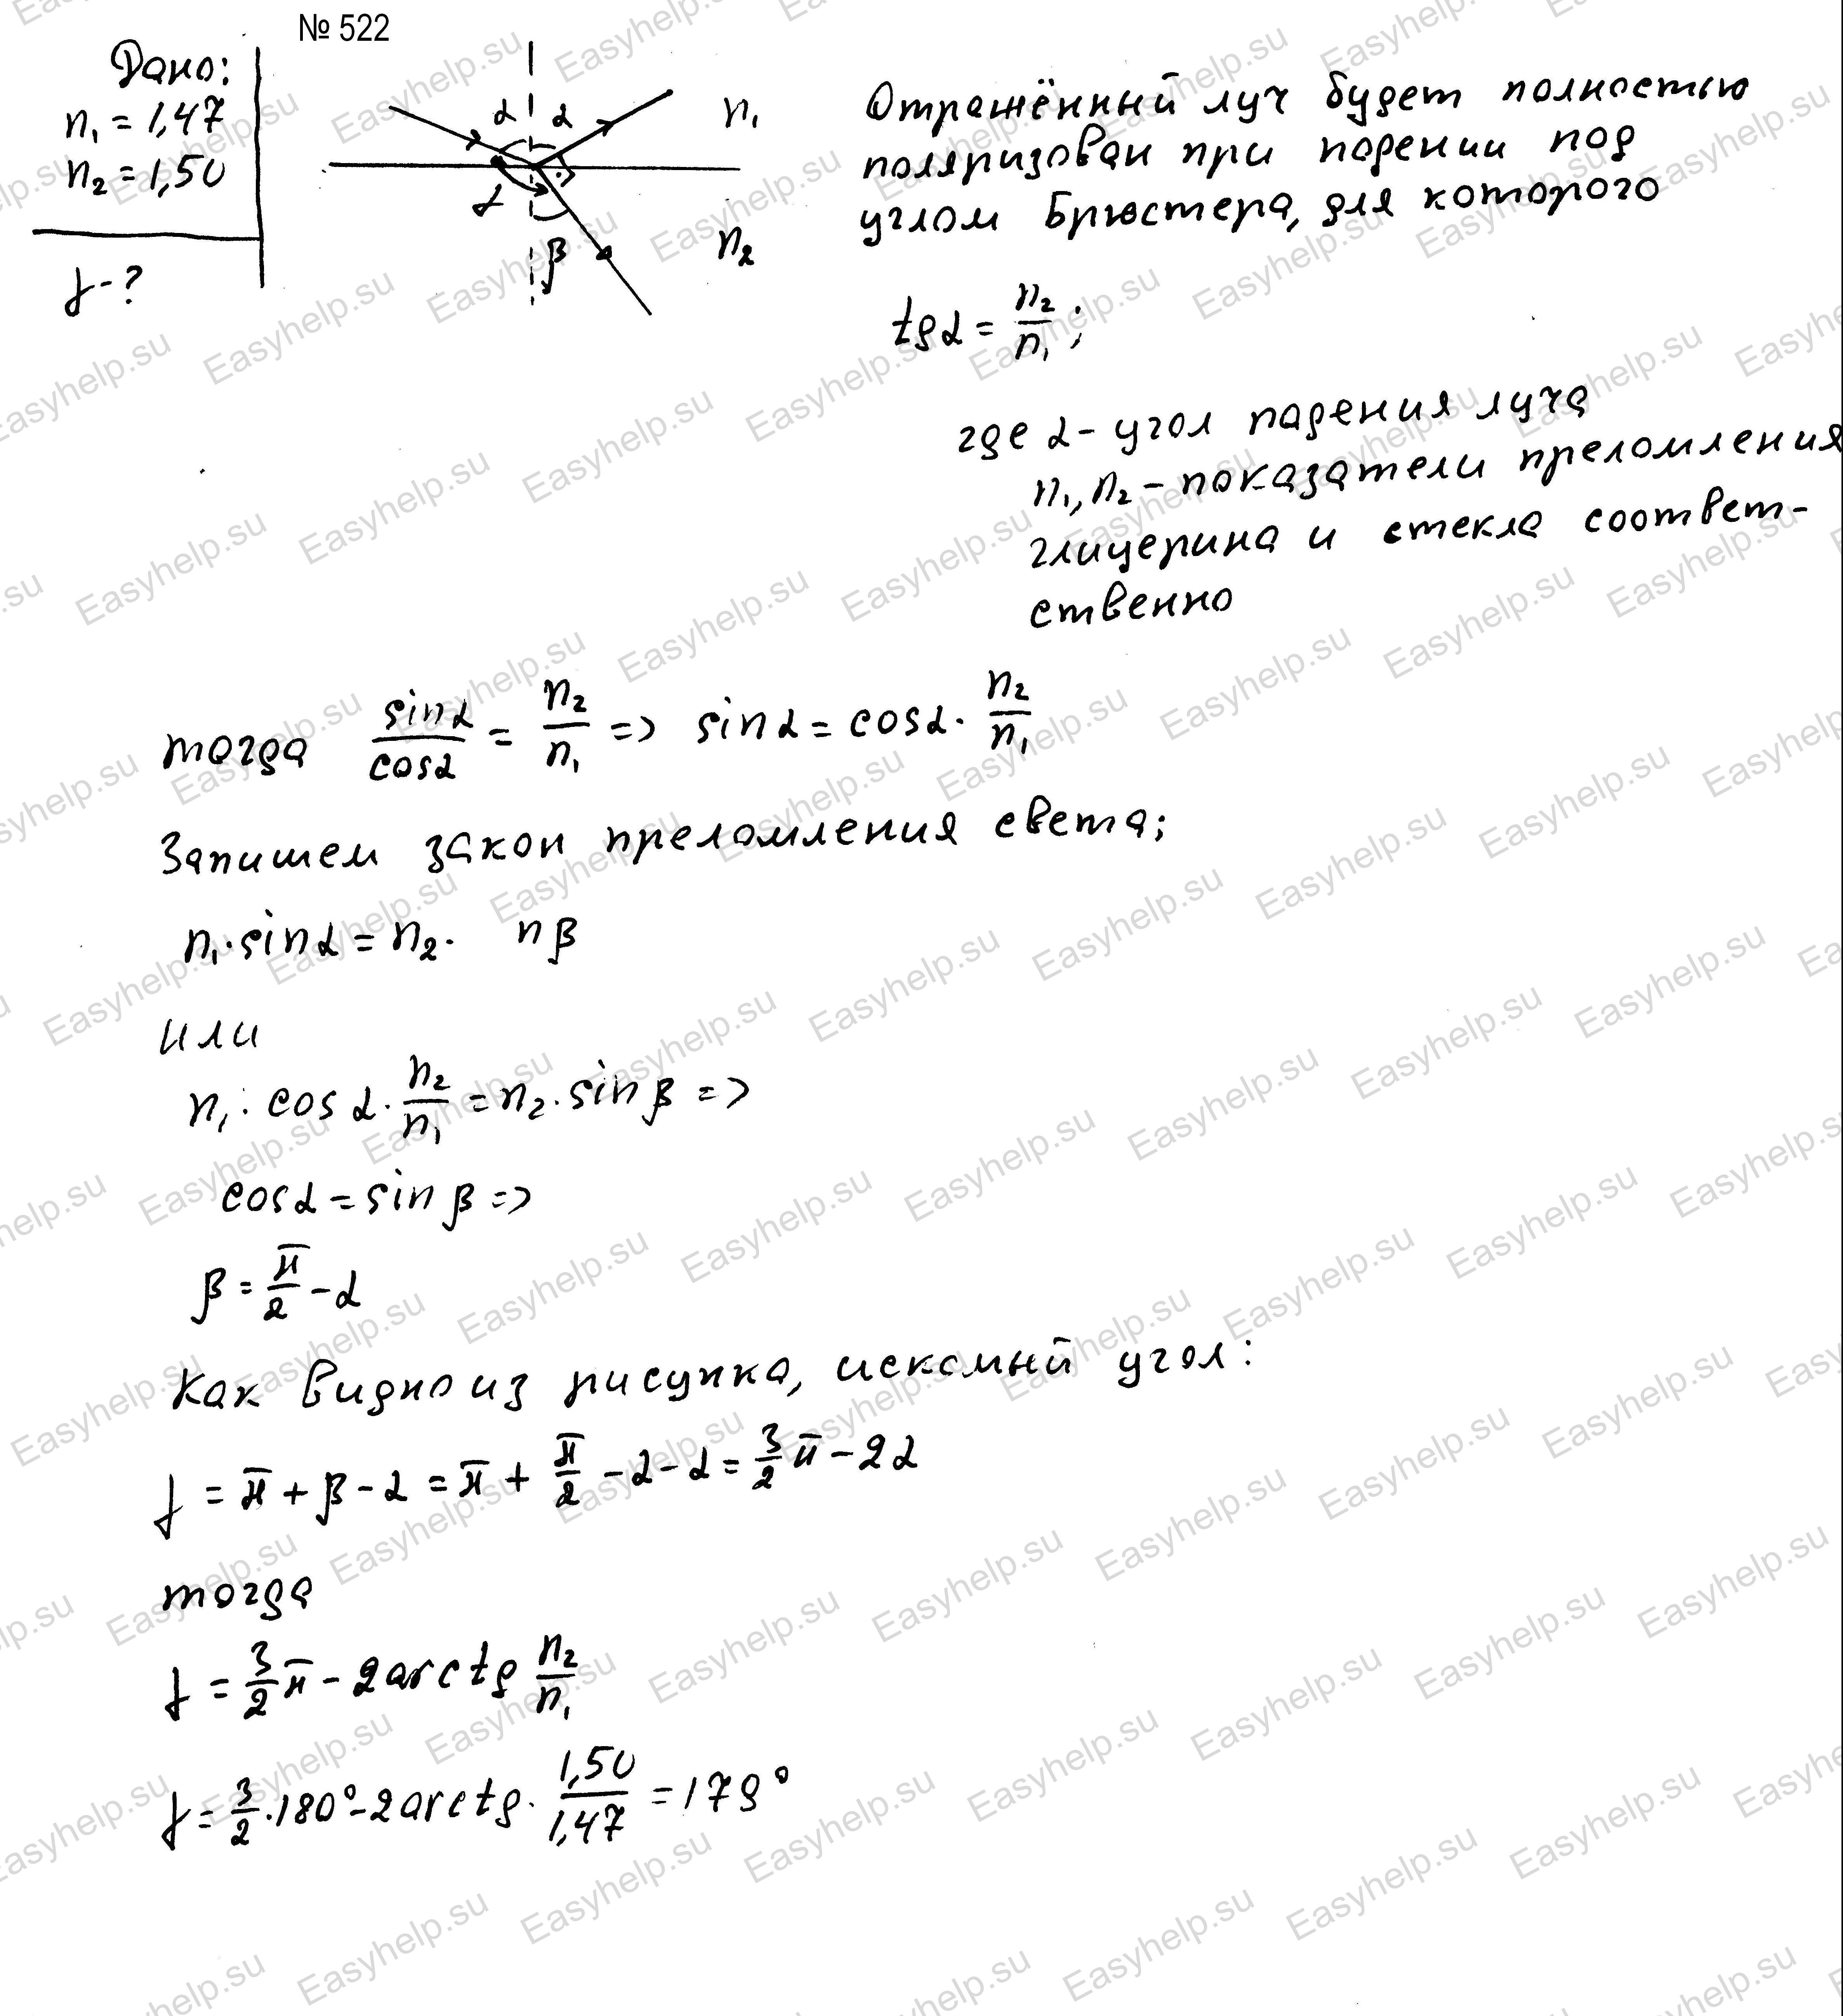 № 522
Дано:
n₁ = 1,47
n₂ = 1,50
γ - ?
α α
n₁
γ
β
n₂
Отражённый луч будет полностью
поляризован при падении под
углом Брюстера, для которого
tgα = n₂/n₁;
где α - угол падения луча
n₁, n₂ - показатели преломления
глицерина и стекла соответ-
ственно
тогда sinα/cosα = n₂/n₁ => sinα = cosα · n₂/n₁
Запишем закон преломления света;
n₁ · sinα = n₂ · nβ
или
n₁ · cosα · n₂/n₁ = n₂ · sinβ =>
cosα = sinβ =>
β = π/2 - α
Как видно из рисунка, искомый угол:
γ = π + β - α = π + π/2 - α - α = 3/2 π - 2α
тогда
γ = 3/2 π - 2arctg n₂/n₁
γ = 3/2 · 180° - 2arctg · 1,50/1,47 = 179°
Easyhelp.su